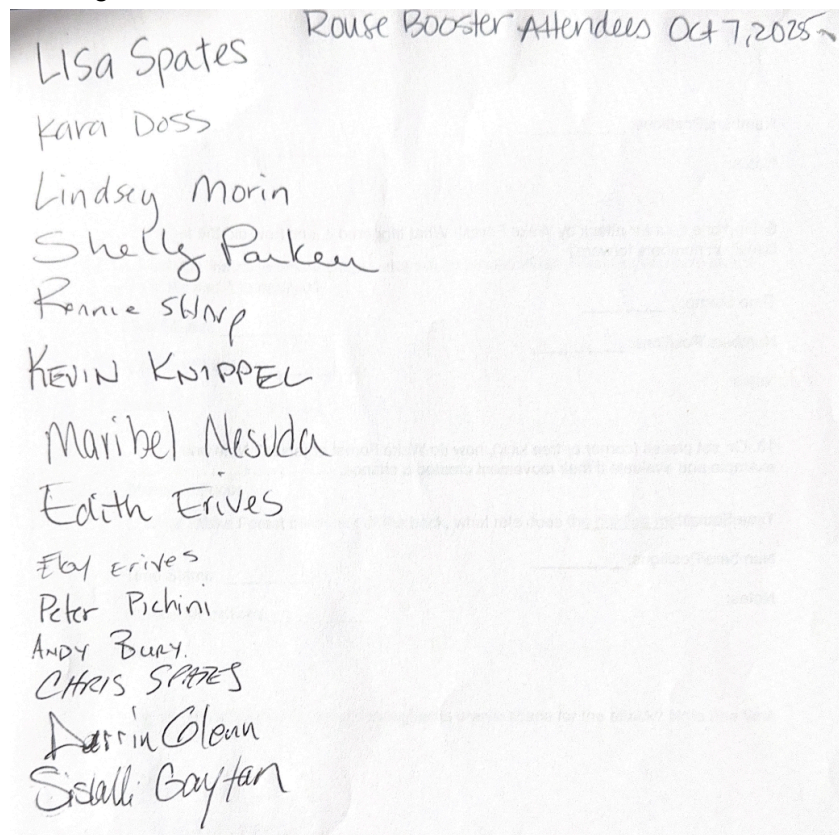 Rouse Booster Attendees Oct 7, 2025
Lisa Spates
Kara Doss
Lindsey Morin
Shelly Parker
Ronnie
KEVIN KNIPPEL
Maribel Nesuda
Edith Erives
Eloy Erives
Peter Pichini
ANDY BURY.
CHRIS SPATES
Darrin Glenn
Gaytan